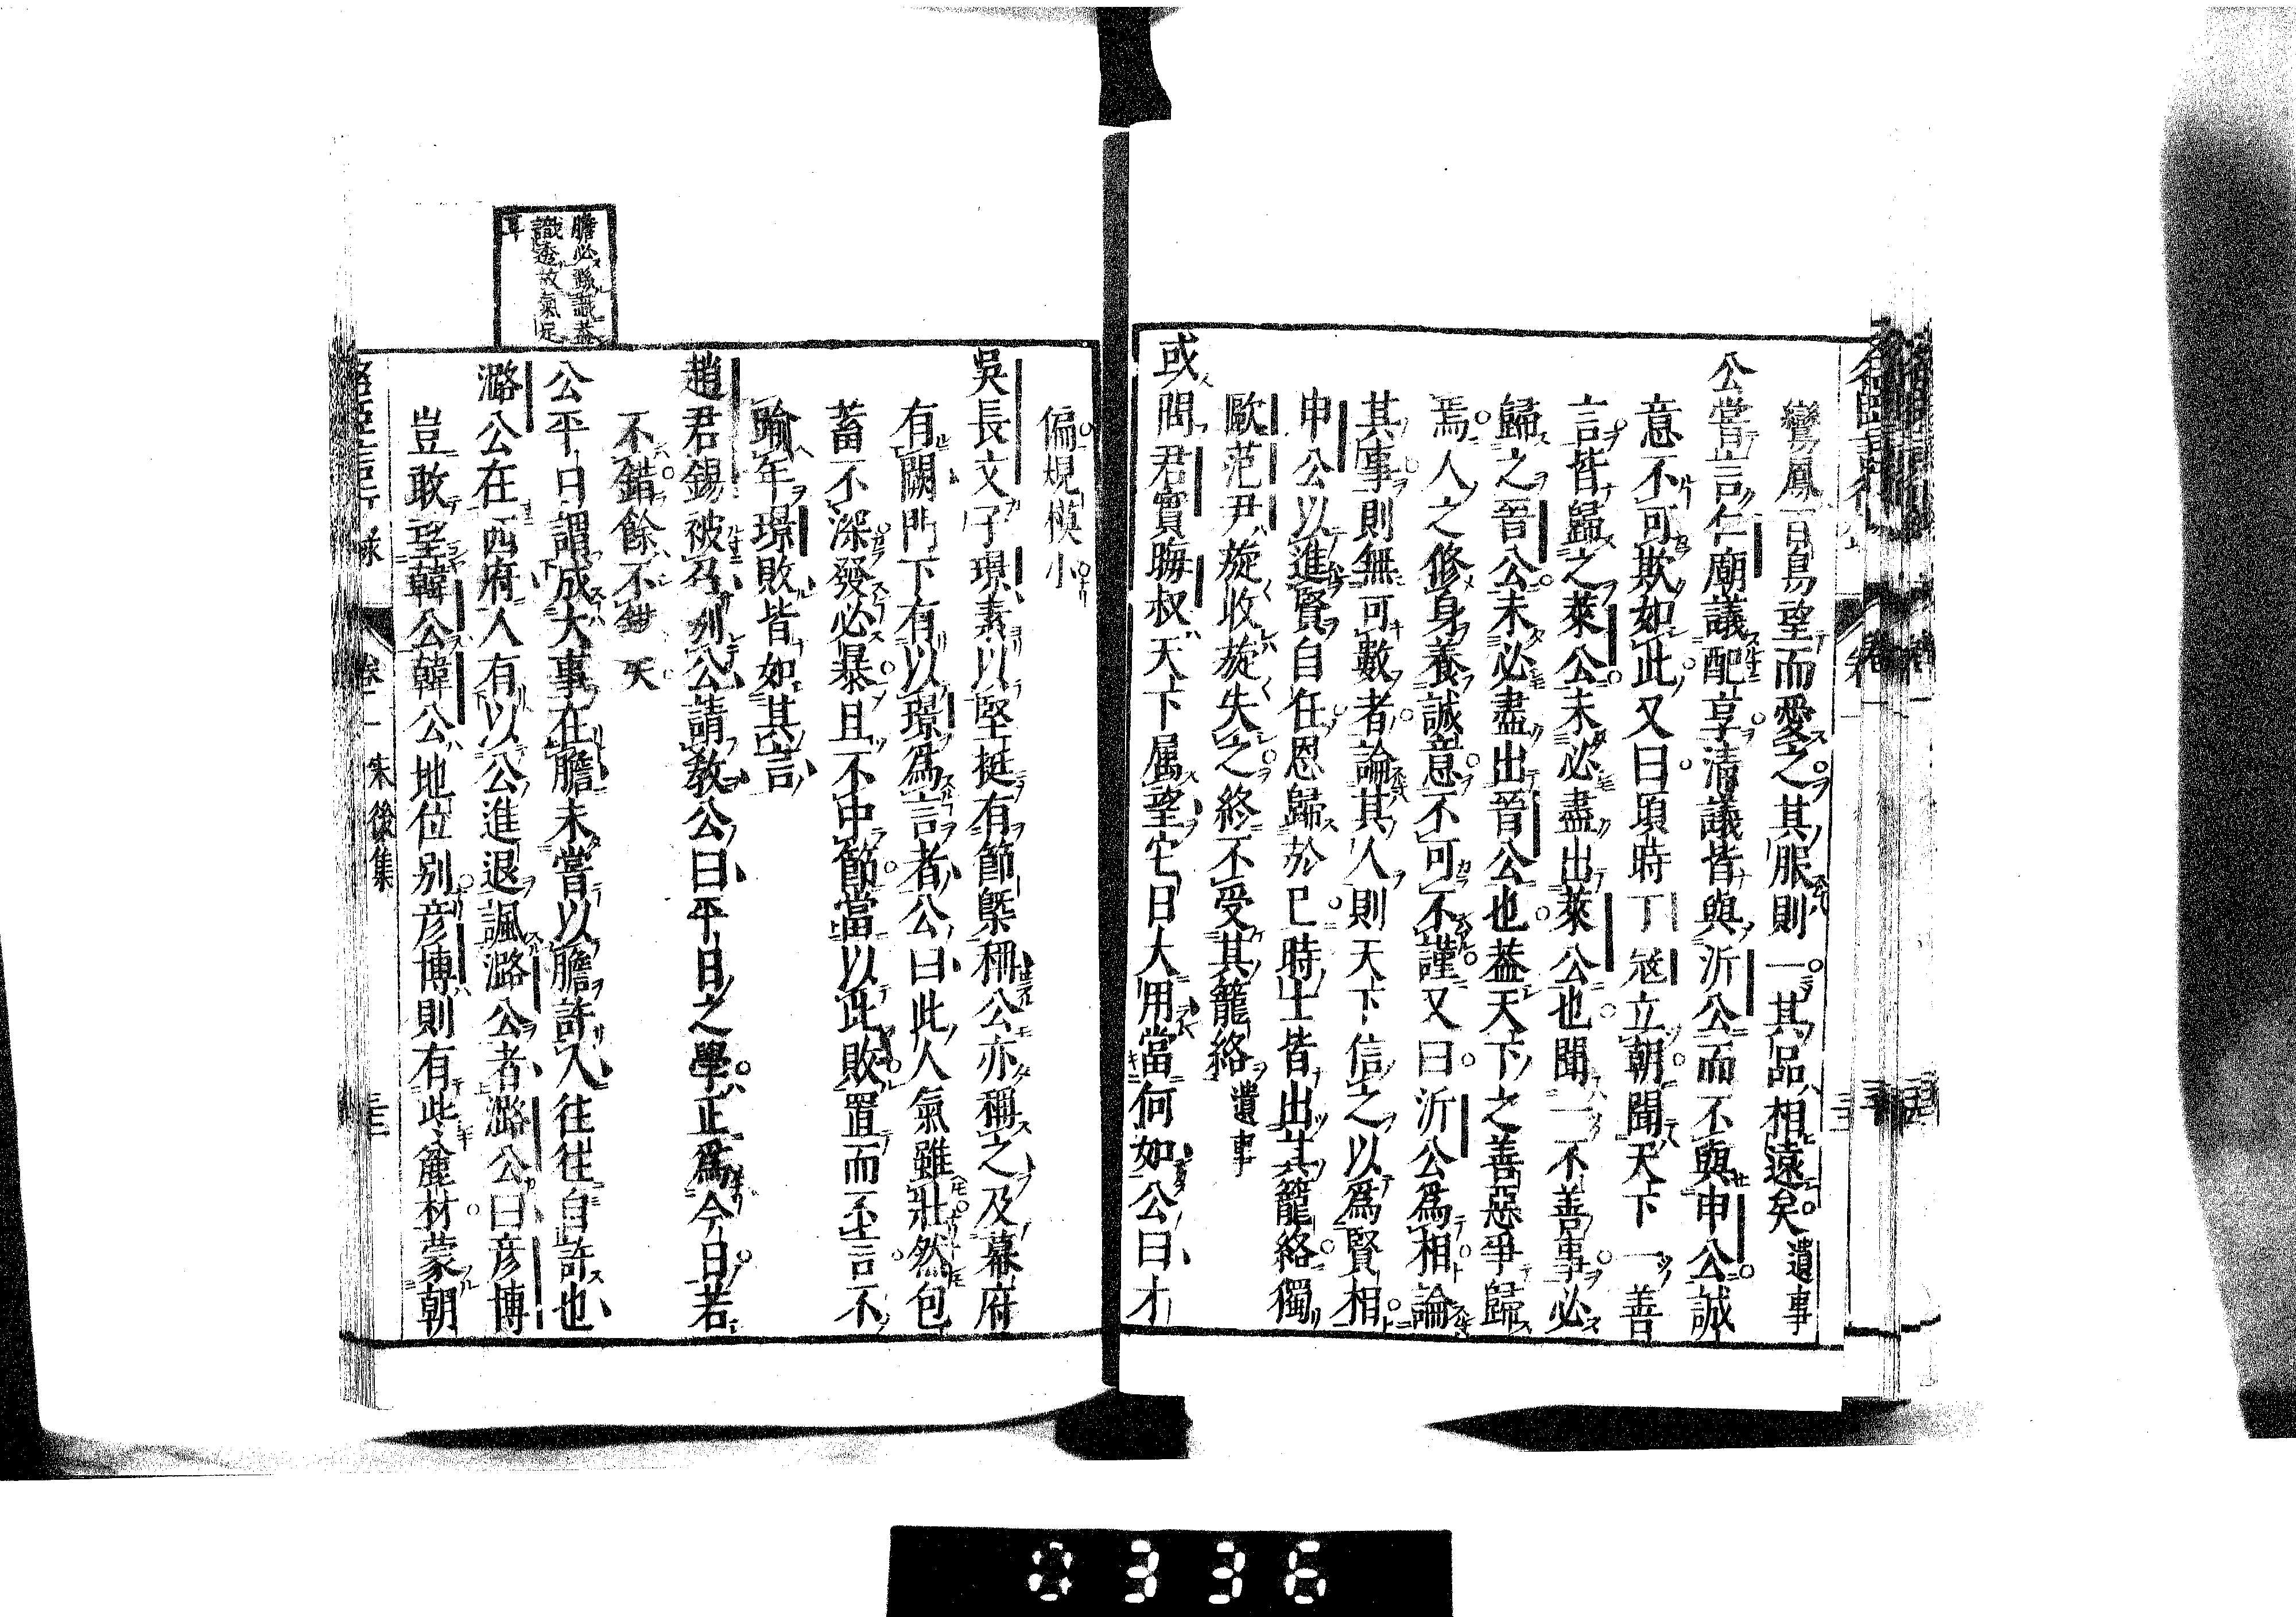 鸞鳳百鳥望而愛之其服則一其品相遠矣遺事
公嘗言仁廟議配享清議皆與沂公而不與申公誠
意不可欺如此又曰頃時丁寇立朝聞天下一善
言皆歸之萊公未必盡出萊公也聞一不善事必
歸之晉公未必盡出晉公也葢天下之善惡爭歸
焉人之修身養誠意不可不謹又曰沂公爲相論
其事則無可數者論其人則天下信之以爲賢相
申公以進賢自任恩歸於已時士皆出其籠絡獨
歐范尹旋收旋失之終不受其籠絡遺事
或問君實晦叔天下属望它日大用當何如公曰才
偏規模小
吳長文子璟素以堅挺有節槩稱公亦稱之及幕府
有闕門下有以璟爲言者公曰此人氣雖壯然包
蓄不深發必暴且不中節當以此敗置而不言不
踰年璟敗皆如其言
趙君錫被召判公請教公曰平日之學正爲今日若
不錯餘不錯矣
公平日謂成大事在膽未嘗以膽許人往往自許也
潞公在西府人有以公進退諷潞公者潞公曰彦博
豈敢望韓公韓公地位别彦博則有些麄材蒙朝
膽必繇識葢
識透故氣足
耳
卷一 宋後集
三三
0336